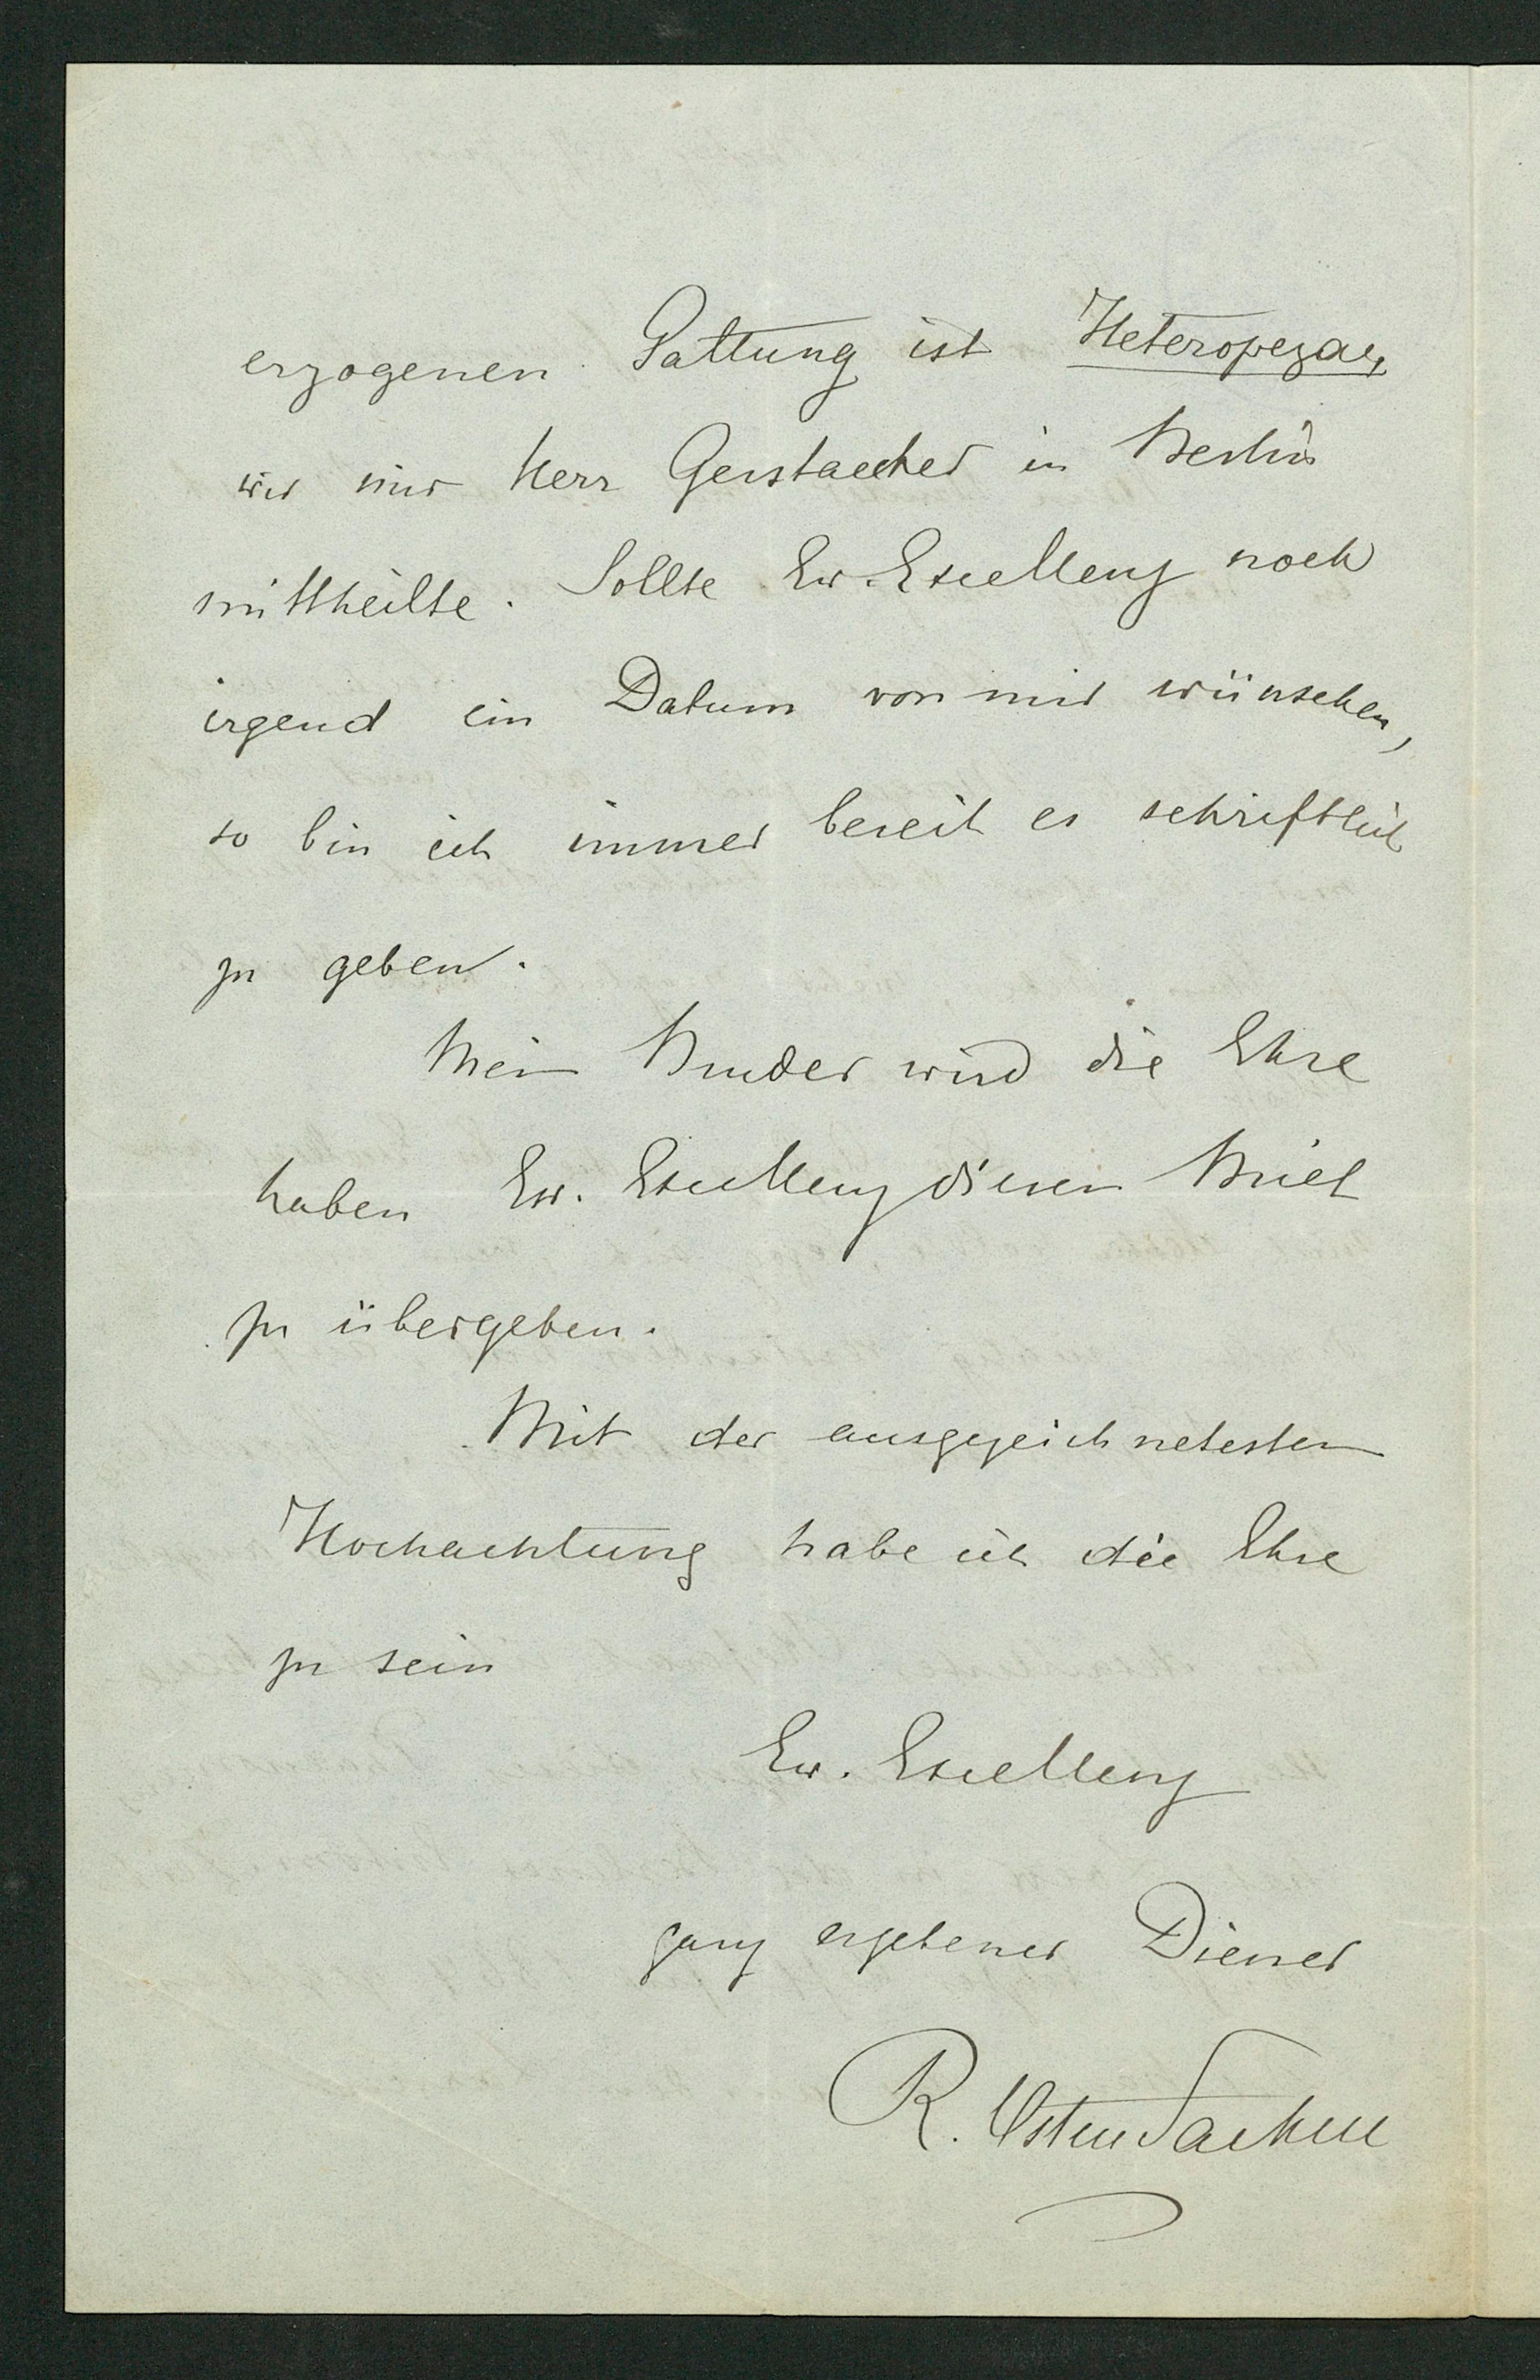 erzogenen Gattung ist Heteropeza,
wie mir Herr Gerstaecker in Berlin
mittheilte. Sollte Ew. Excellenz noch
irgend ein Datum von mir wünschen,
so bin ich immer bereit es schriftlich
zu geben.
Mein Bruder wird die Ehre
haben Ew. Excellenz diesen Brief
zu übergeben.
Mit der ausgezeichnetesten
Hochachtung habe ich die Ehre
zu sein
Ew. Excellenz
ganz ergebener Diener
R. Osten Sacken